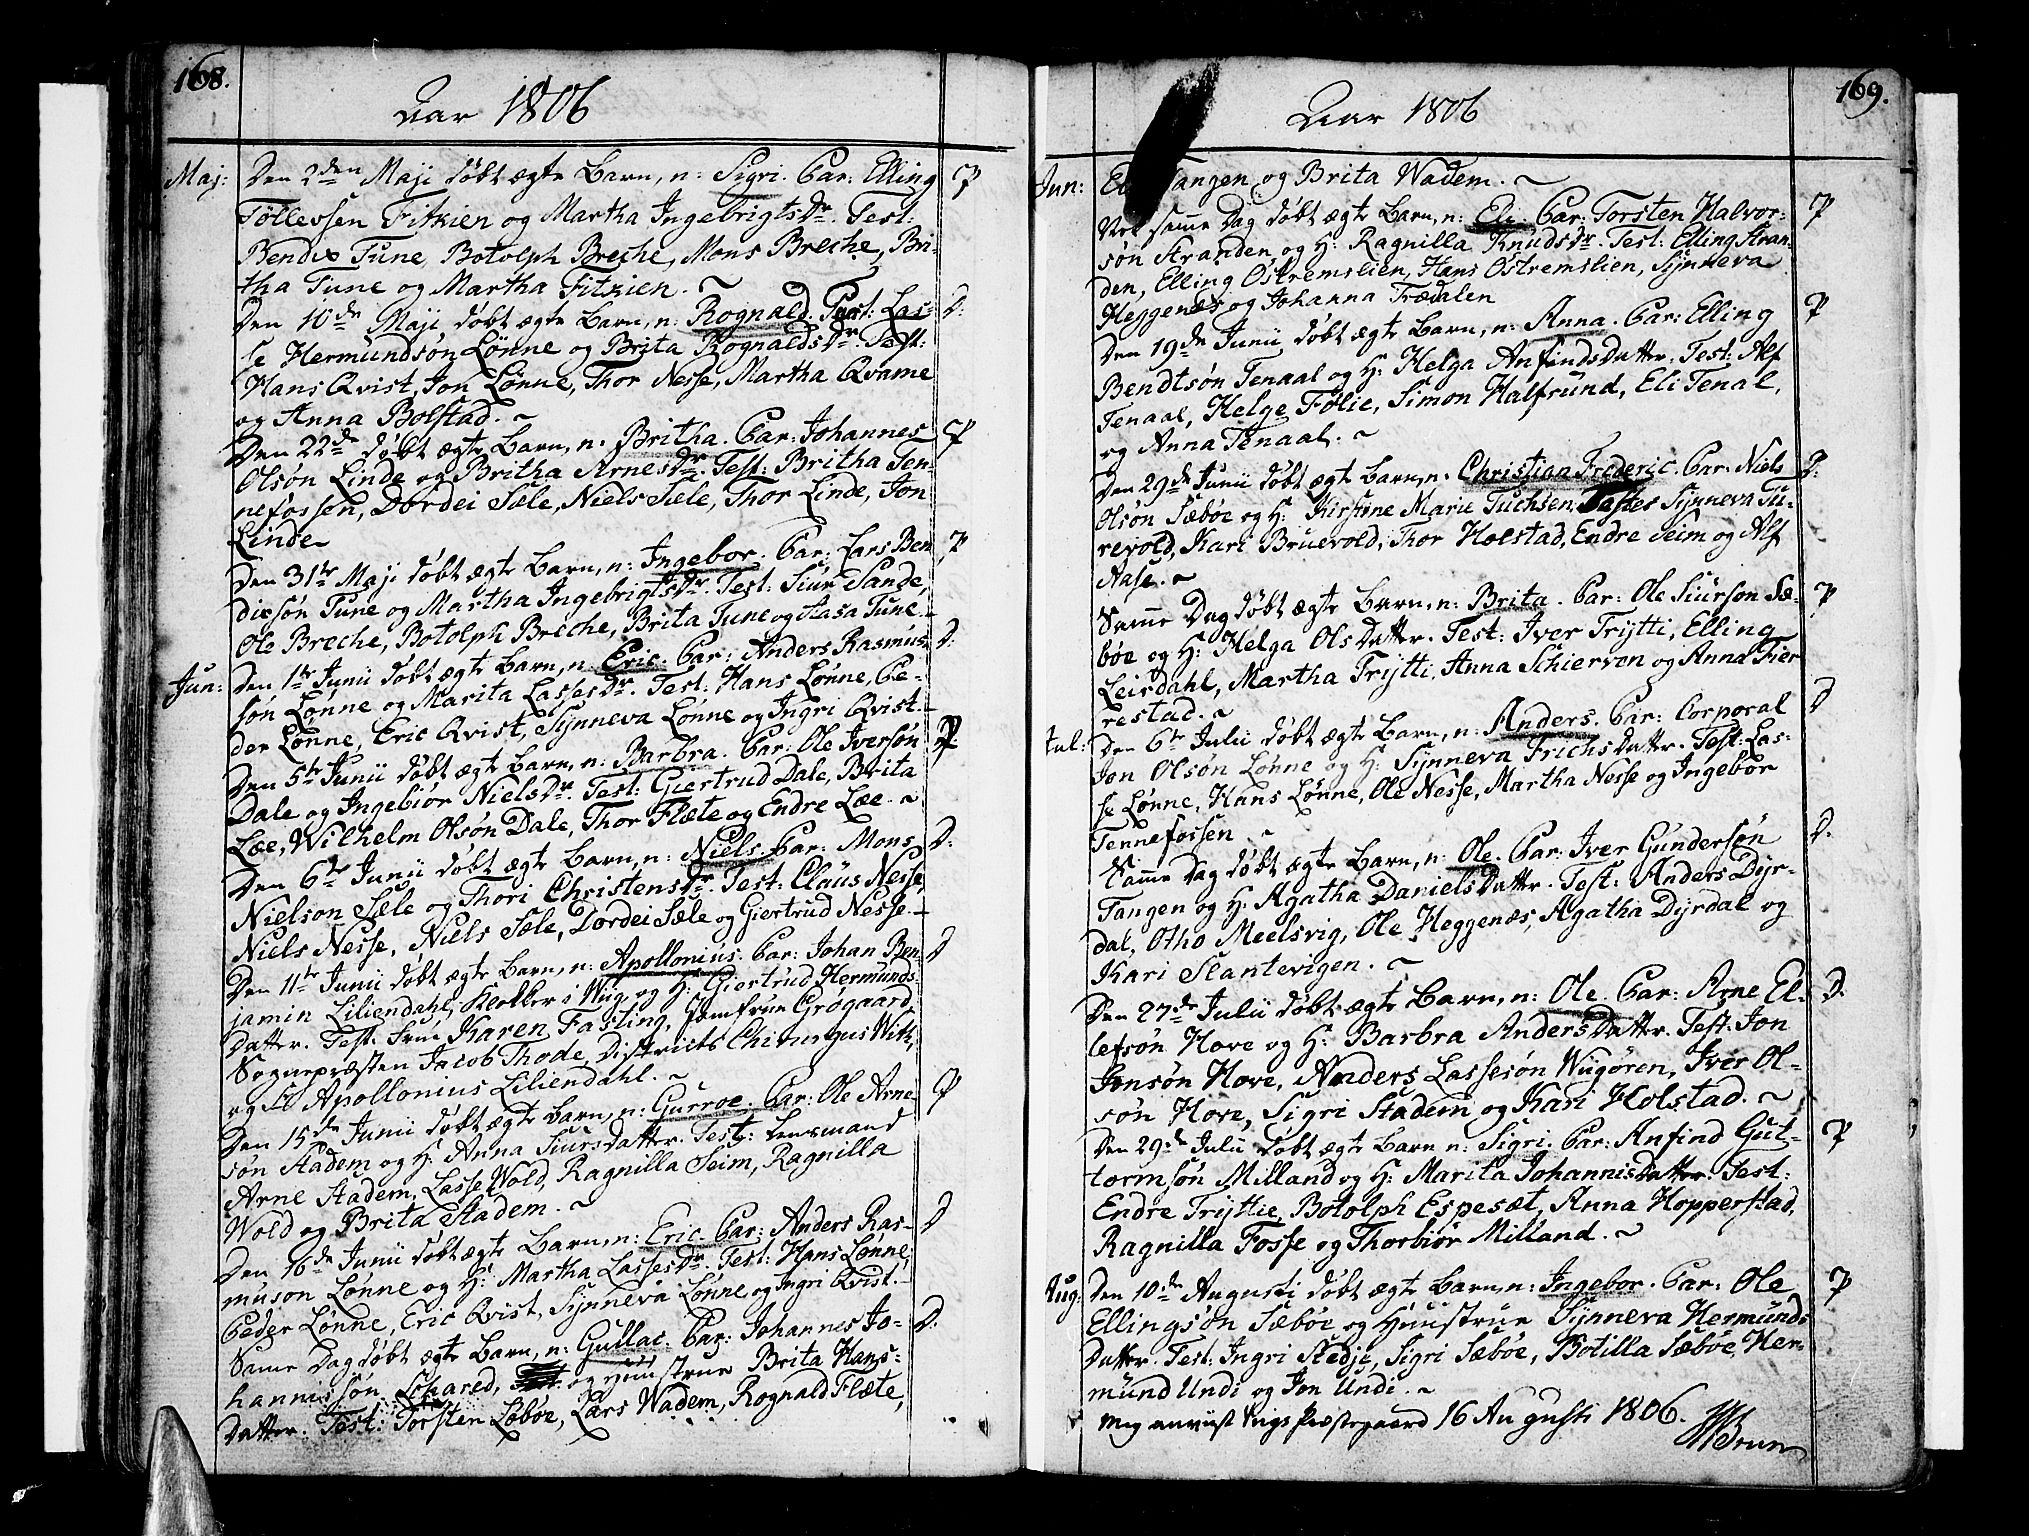 168.
Aar 1806
Maj: Den 2den Maji døbt ægte Barn, n: Sigri. Par: Elling P
Tøllefsen Fitzien og Martha Ingebrigtsdr. Test:
Bendix Tune, Botolph Breche, Mons Breche, Bri-
tha Tune og Martha Fitzien. ~
Den 10de Maji døbt ægte Barn, n: Rognald. Par: Las- D.
se Hermundsøn Lønne og Brita Rognaldsdr. Test:
Hans Qvist, Jon Lønne, Thor Nesse, Martha Qvame
og Anna Bolstad. ~
Den 22de døbt ægte Barn, n: Britha. Par: Johannes P
Olsøn Linde og Britha Arnesdr. Test: Britha Ten-
nefossen, Dordei Sæle, Niels Sæle, Thor Linde, Jon
Linde
Den 31te Maji døbt ægte Barn, n: Ingebor. Par: Lars Ben P
dixsøn Tune og Martha Ingebrigtsdr. Test: Siur Sande,
Ole Breche, Botolph Breche, Brita Tune og Aasa Tune.
Jun: Den 1te Junii døbt ægte Barn, n. Eric. Par: Anders Rasmus- D.
søn Lønne og Marita Lassesdr. Test: Hans Lønne, Pe-
der Lønne, Eric Qvist, Synneva Lønne og Ingri Qvist.
Den 5te Junii døbt ægte Barn, n: Barbra. Par: Ole Iversøn P
Dale og Ingebiør Nielsdr. Test: Giertrud Dale, Brita
Læe, Wilhelm Olsøn Dale, Thor Flæte og Endre Læe. ~
Den 6te Junii døbt ægte Barn, n: Niels. Par: Mons D:
Nielson Sæle og Thori Christensdr. Test: Claus Nesse,
Niels Nesse, Niels Sæle, Dordei Sæle og Giertrud Nesse.
Den 11te Junii døbt ægte Barn, n: Apollonius. Par: Johan Ben D
jamin Liliendahl, Klokker i Wiig, og H: Giertrud Hermunds-
Datter. Test: Frue Karen Fasting, Jomfrue Grøgaard,
Sognepræsten Jacob Thode, Districts Chirurgus With,
og Apollonius Liliendahl. ~
Den 15de Junii døbt ægte Barn, n: Gurroe. Par: Ole Arne- P
søn Stadem og H: Anna Siursdatter. Test: Lensmand
Arne Stadem, Lasse Wold, Ragnilla Seim, Ragnilla
Wold og Brita Stadem. ~
Den 16de Junii døbt ægte Barn, n: Eric. Par: Anders Ras- D
muson Lønne og H: Martha Lassesdr. Test: Hans Lønne,
Peder Lønne, Eric Qvist, Synneva Lønne og Ingri Qvist.
Same Dag døbt ægte Barn, n: Gullac. Par: Johannes Jo- D.
hannissøn Schared, og Hustrue Brita Hans-
Datter. Test: Torsten Løbøe, Lars Wadem, Rognald Flæte,
169.
Aar 1806
Jun: Tangen og Brita Wadem. ~
samme Dag døbt ægte Barn, n: Eli. Par: Torsten Halvor- P
søn Stranden og H: Ragnilla Knudsdr. Test: Elling Stran-
den, Elling Ostremslien, Hans Ostremslien, Synneva
Heggenæs og Johanna Trædalen
Den 19de Junii døbt ægte Barn, n: Anna. Par: Elling P
Bendtsøn Tenaal og H: Helga Anfindsdatter. Test: Alf
Tenaal, Helge Følie, Simon Halfrund, Eli Tenal,
og Anna Tenaal. ~
Den 29de Junii døbt ægte Barn, n: Christian Frederic. Par: Niels D.
Olsøn Sæbøe og H: Kirstine Marie Tuchsen. Testes Synneva Tu-
revold, Kari Bruevold, Thor Holstad, Endre Seim og Alf
Aase. ~
Samme Dag døbt ægte Barn, n: Brita. Par: Ole Siurson Sæ- P
bøe og H: Helga Olsdatter. Test: Iver Trytti, Elling
Leirdahl, Martha Trytti, Anna Schierven og Anna Fier
restad. ~
Jul: Den 6te Julii døbt ægte Barn, n: Anders. Par: Corporal D
Jon Olsøn Lønne og H: Synneva Frichsdatter. Test: Las-
se Lønne, Hans Lønne, Ole Nesse, Martha Nesse og Ingebor
Tennefossen. ~
Samme Dag døbt ægte Barn, n: Ole. Par: Iver Gundersøn D.
Tangen og H: Agatha Danielsdatter. Test: Anders Dyr-
dal, Otho Meelsvig, Ole Heggenæs, Agatha Dyrdal og
Kari Slantevigen. ~
Den 27de Julii døbt ægte Barn, n: Ole. Par: Arne El- D.
lefsøn Hove og H: Barbra Andersdatter. Test: Jon
Jonsøn Hove, Anders Lassesøn Wugøren, Iver Ol-
søn Hove, Sigri Stadem og Kari Holstad. ~
Den 29de Julii døbt ægte Barn n: Sigri. Par: Anfind Gut- P
tormsøn Milland og H: Marita Johannisdatter. Test:
Endre Tryttie, Botolph Espesæt, Anna Hopperstad,
Ragnilla Fosse og Thorbiør Milland. ~
Aug: Den 10de Augusti døbt ægte Barn, n: Ingebor. Par: Ole P
Ellingsøn Sæbøe og Huustrue Synneva Hermunds
Datter. Test: Ingri Stedje, Sigri Sæbøe, Botilla Sæbøe, Her-
mund Undi og Jon Undi. ~
Mig anviist Viigs Præstegaard 16 Augusti 1806.